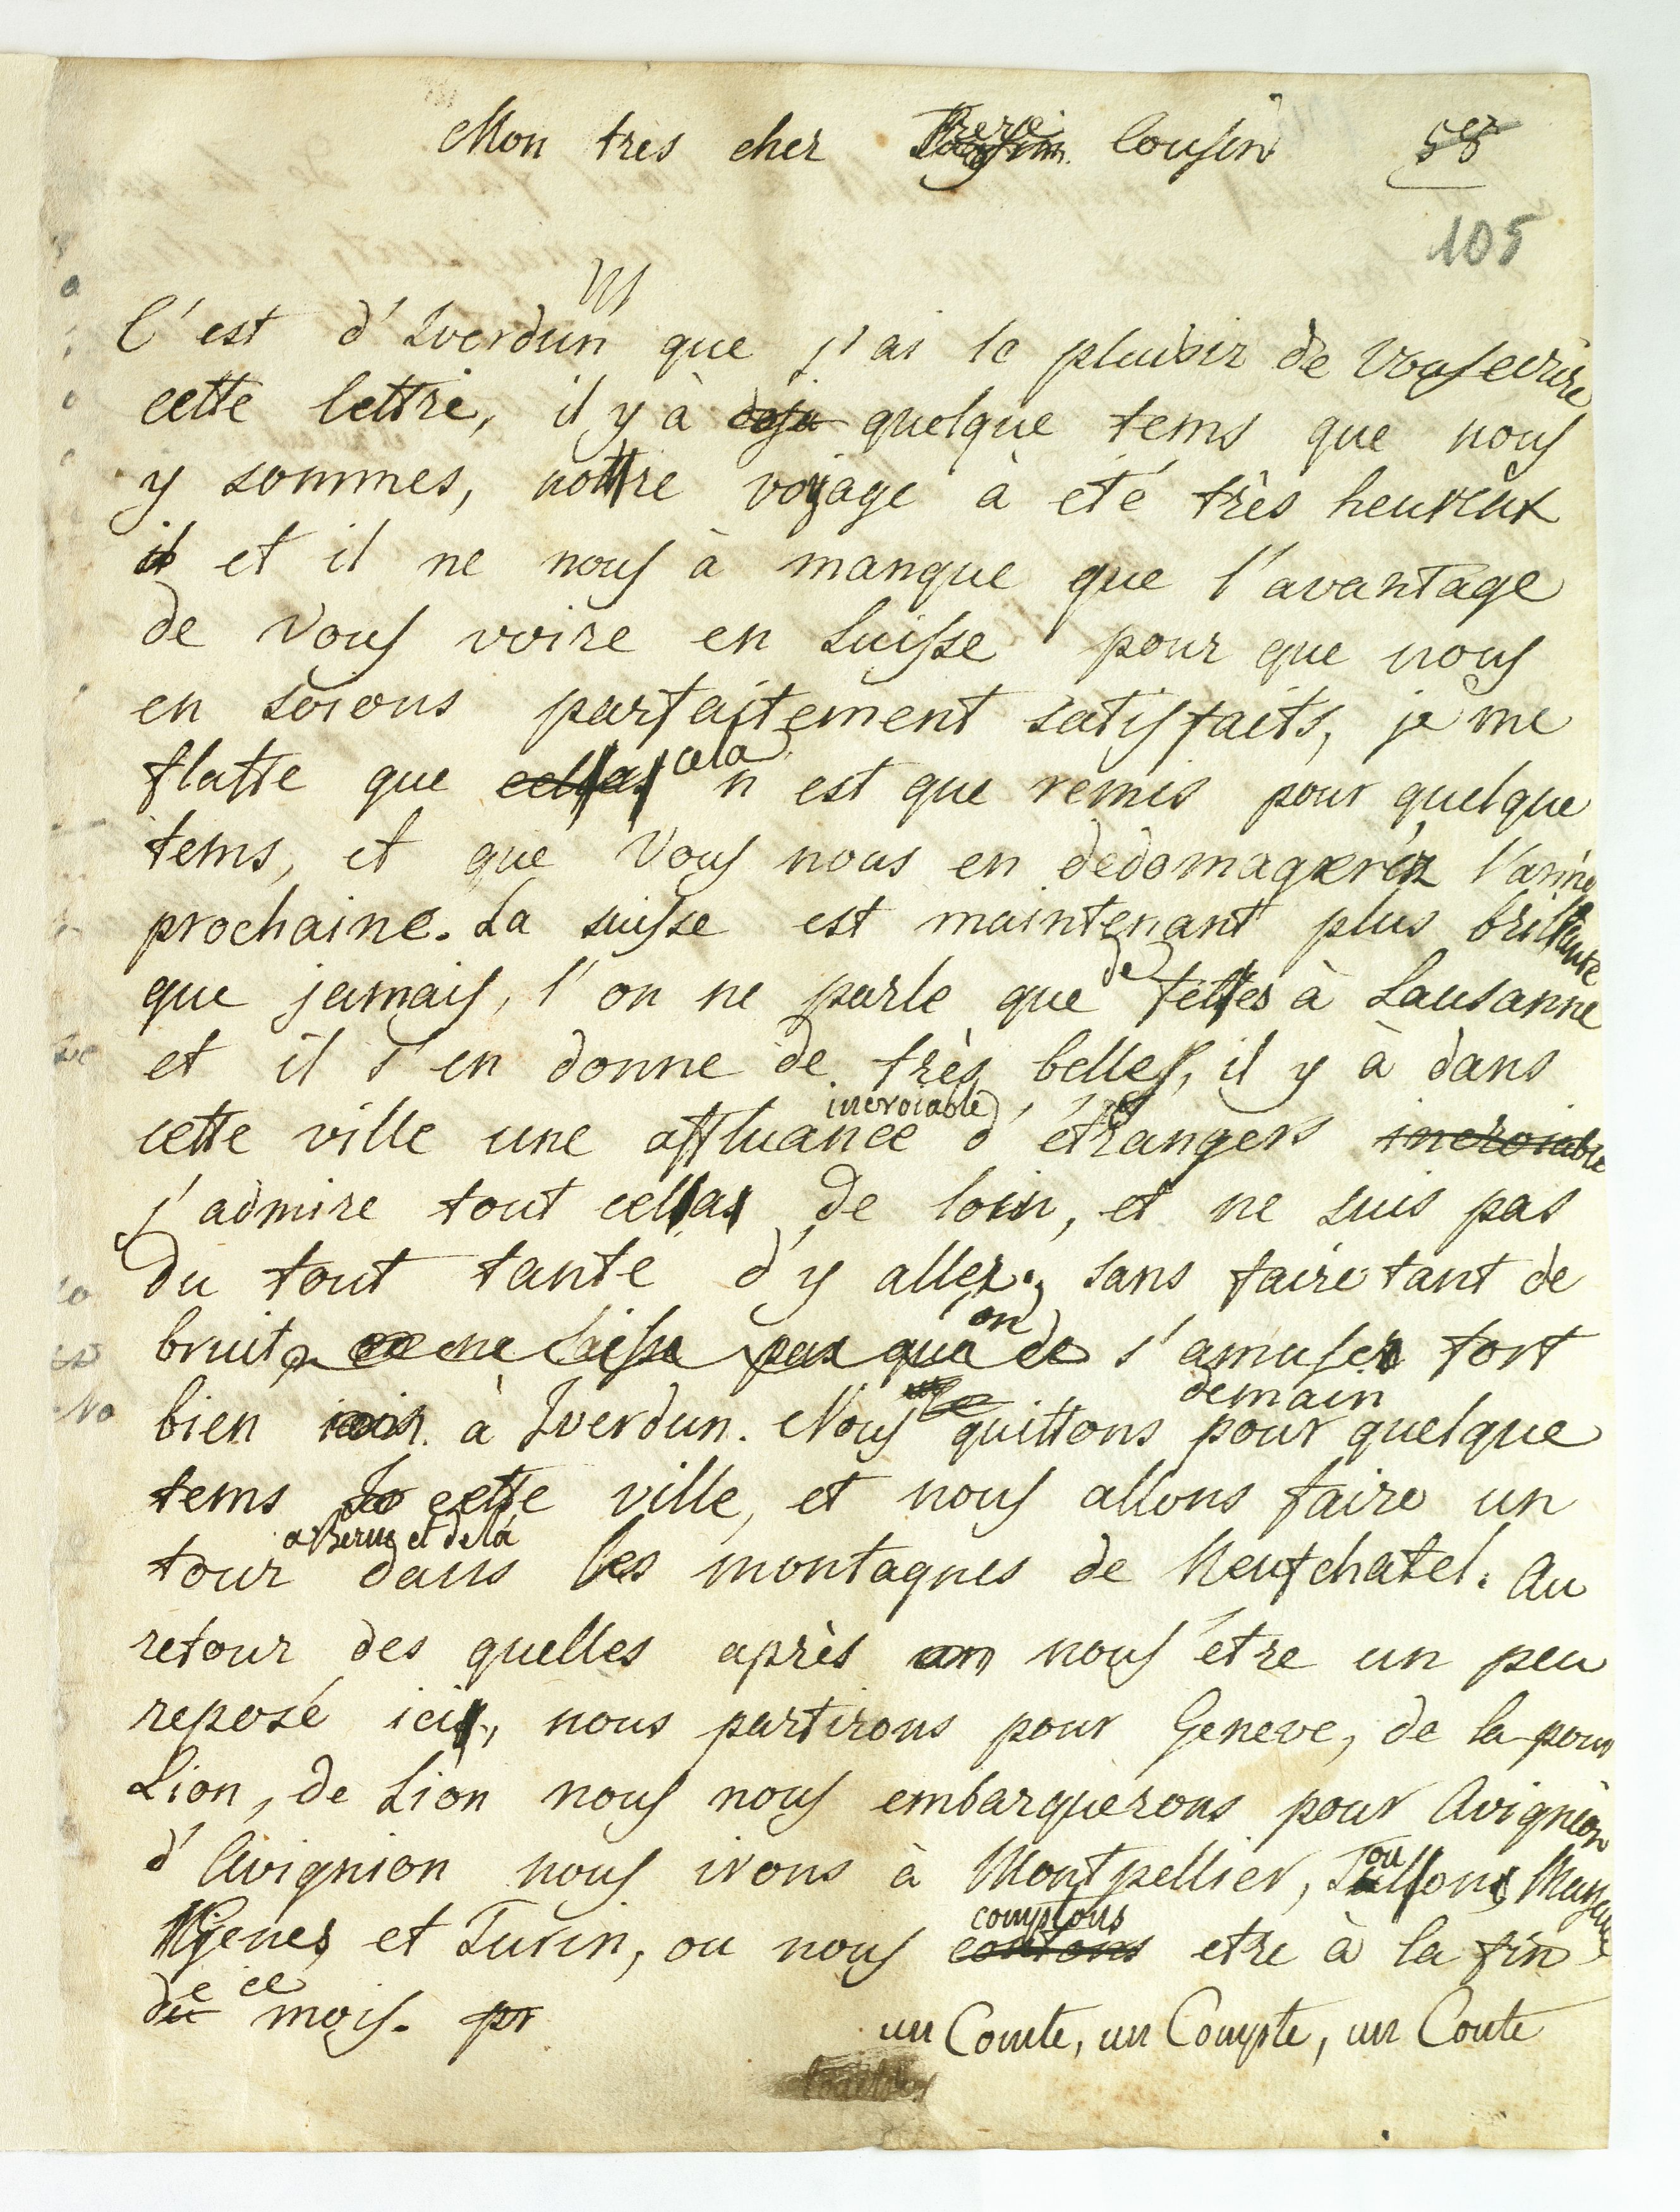 Mon tres cher Cousin 58
105
C'est d'Iverdun que j'ai le plaisir de vous ecrire
cette lettre, il y à deja quelque tems que nous
y sommes, nottre voyage à eté très heureux
il et il ne nous à manque que l'avantage
de vous voire en Suisse pour que nous
en soions parfaitement satisfaits, je me
flatte que cella cela n est que remis pour quelque
tems, et que vous nous en dedomagerez l'anné
prochaine. La suisse est maintenant plus brillante
que jamais, l'on ne parle que de fettes à Lausanne
et il s'en donne de très belles, il y à dans
cette ville une affluance incroiable d'étrangers incroiable
j'admire tout cella de loin, et ne suis pas
du tout tante d'y aller. sans faire tant de
bruit, ce ne laisse pas que de on s'amuser fort
bien à Iverdun. Nous quittons demain pour quelque
tems cette ville, et nous allons faire un
tour a Berne et de là dans les montagnes de Neufchatel. Au
retour des quelles après nous être un peu
reposé ici, nous partirons pour Geneve, de la pour
Lion, de Lion nous nous embarquerons pour Avignion
d'Avignion nous irons à Montpellier, Toullon, Marseille
Genes et Turin, ou nous contons comptons etre à la fin
de ce mois. pr
un Comte, un Compte, un Conte